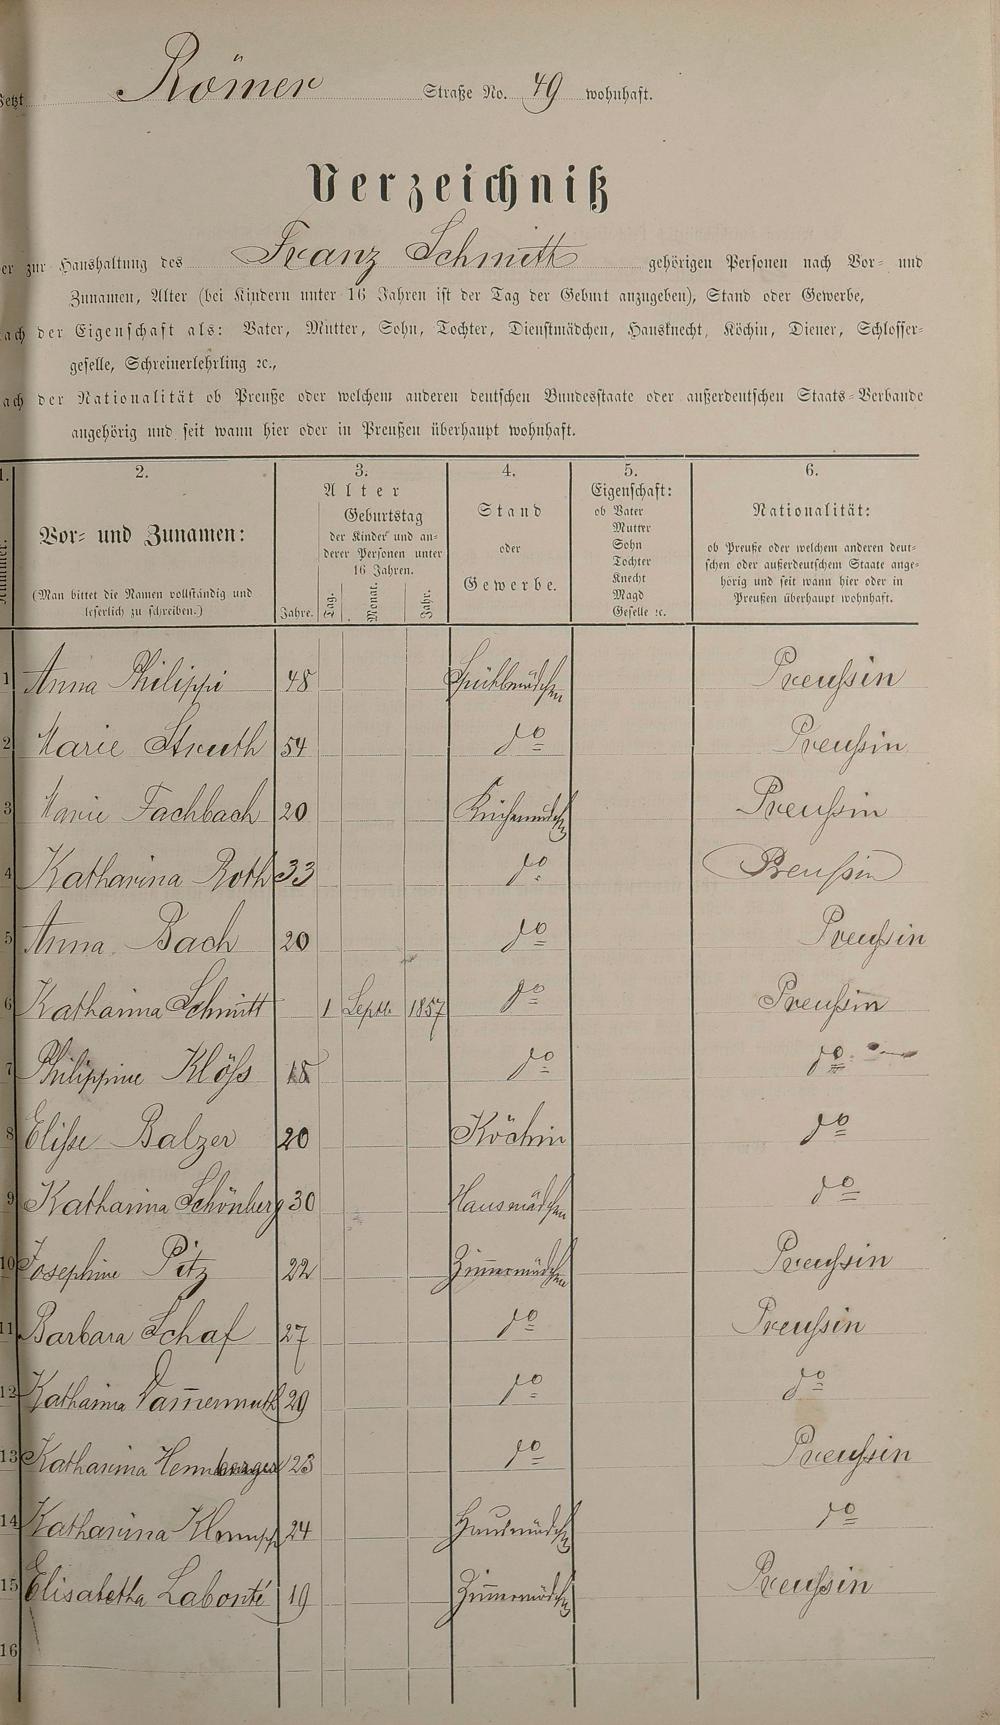 Jetzt Römer Straße No. 49 wohnhaft.
Verzeichniß
er zur Haushaltung des Franz Schmitt gehörigen Personen nach Vor- und
Zunamen, Alter (bei Kindern unter 16 Jahren ist der Tag der Geburt anzugeben), Stand oder Gewerbe,
ach der Eigenschaft als: Vater, Mutter, Sohn, Tochter, Dienstmädchen, Hausknecht, Köchin, Diener, Schlosser-
geselle, Schreinerlehrling ꝛc.,
ach der Nationalität ob Preuße oder welchem anderen deutschen Bundesstaate oder außerdeutschen Staats-Verbande
angehörig und seit wann hier oder in Preußen überhaupt wohnhaft.
1.
Nummer.
2.
Vor- und Zunamen:
(Man bittet die Namen vollständig und
leserlich zu schreiben.)
3.
Alter
Jahre.
Geburtstag
der Kinder und an-
derer Personen unter
16 Jahren.
Tag.
Monat.
Jahr.
4.
Stand
oder
Gewerbe.
5.
Eigenschaft:
ob Vater
Mutter
Sohn
Tochter
Knecht
Magd
Geselle ꝛc.
6.
Nationalität:
ob Preuße oder welchem anderen deut-
schen oder außerdeutschem Staate ange-
hörig und seit wann hier oder in
Preußen überhaupt wohnhaft.
1 Anna Philippi 48 Spühlmädchen Preußin
2 Marie Struth 54 do Preußin
3 Marie Fachbach 20 Küchenmädch Preußin
4 Katharina Roth 33 do Preußin
5 Anna Bach 20 do Preußin
6 Katharina Schmitt 1 Septb. 1857 do Preußin
7 Philippine Klöß 18 do do
8 Eliße Balzer 20 Köchin do
9 Katharina Schönberg 30 Hausmädchen do
10 Josephine Pitz 22 Zim̅ermädchen Preußin
11 Barbara Schaf 27 do Preußin
12 Katharina Dam̅ermuth 29 do do
13 Katharina 23 do Preußin
14 Katharina 24 Hausmädch do
15 Elisabetha Labonté 19 Zim̅ermädch Preußin
16